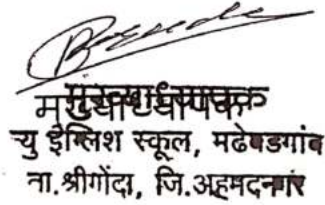 मुख्याध्यापक
न्यु इंग्लिश स्कूल, मढेवडगांव
ता.श्रीगोंदा, जि.अहमदनगर